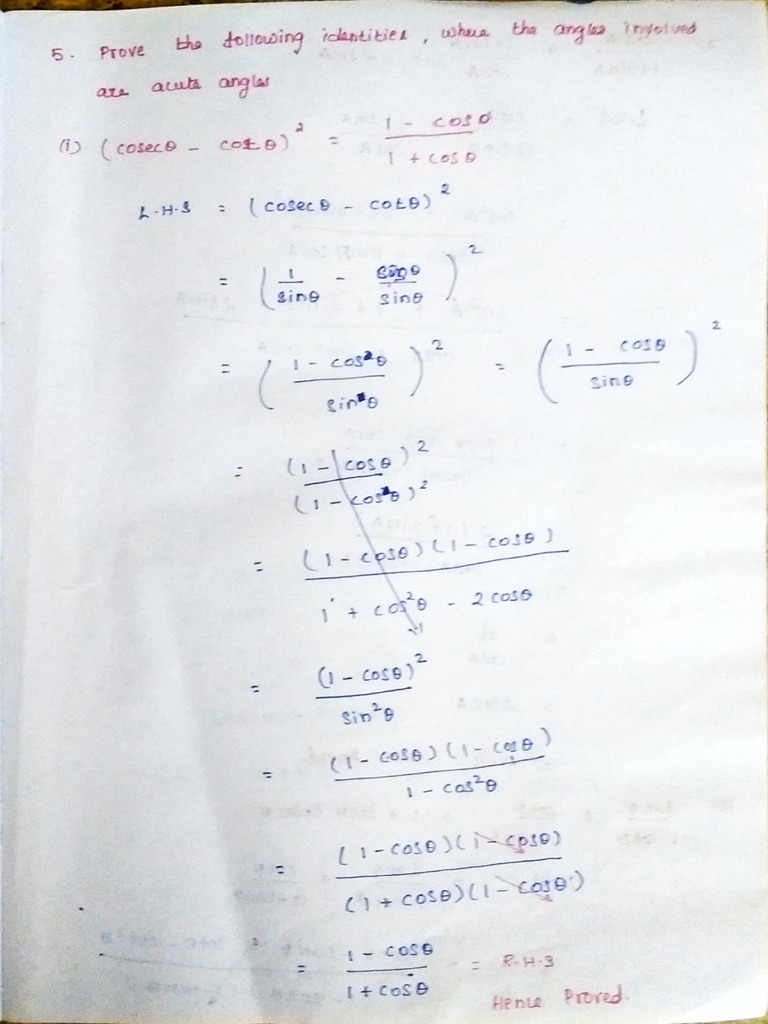 5. Prove the following identities, where the angles involved
are acute angles
(i) (cosecθ - cotθ)² = (1 - cosθ)/(1 + cosθ)
L.H.S = (cosecθ - cotθ)²
= (1/sinθ - cosθ/sinθ)²
= ((1 - cosθ)/(sinθ))² = ((1 - cosθ)/(sinθ))²
= (1 - cosθ)²/(1 - cosθ)²
= (1 - cosθ)(1 - cosθ)/(1 + cos²θ - 2cosθ)
= (1 - cosθ)²/sin²θ
= (1 - cosθ)(1 - cosθ)/(1 - cos²θ)
= (1 - cosθ)(1 - cosθ)/(1 + cosθ)(1 - cosθ)
= (1 - cosθ)/(1 + cosθ) = R.H.S
Hence Proved.